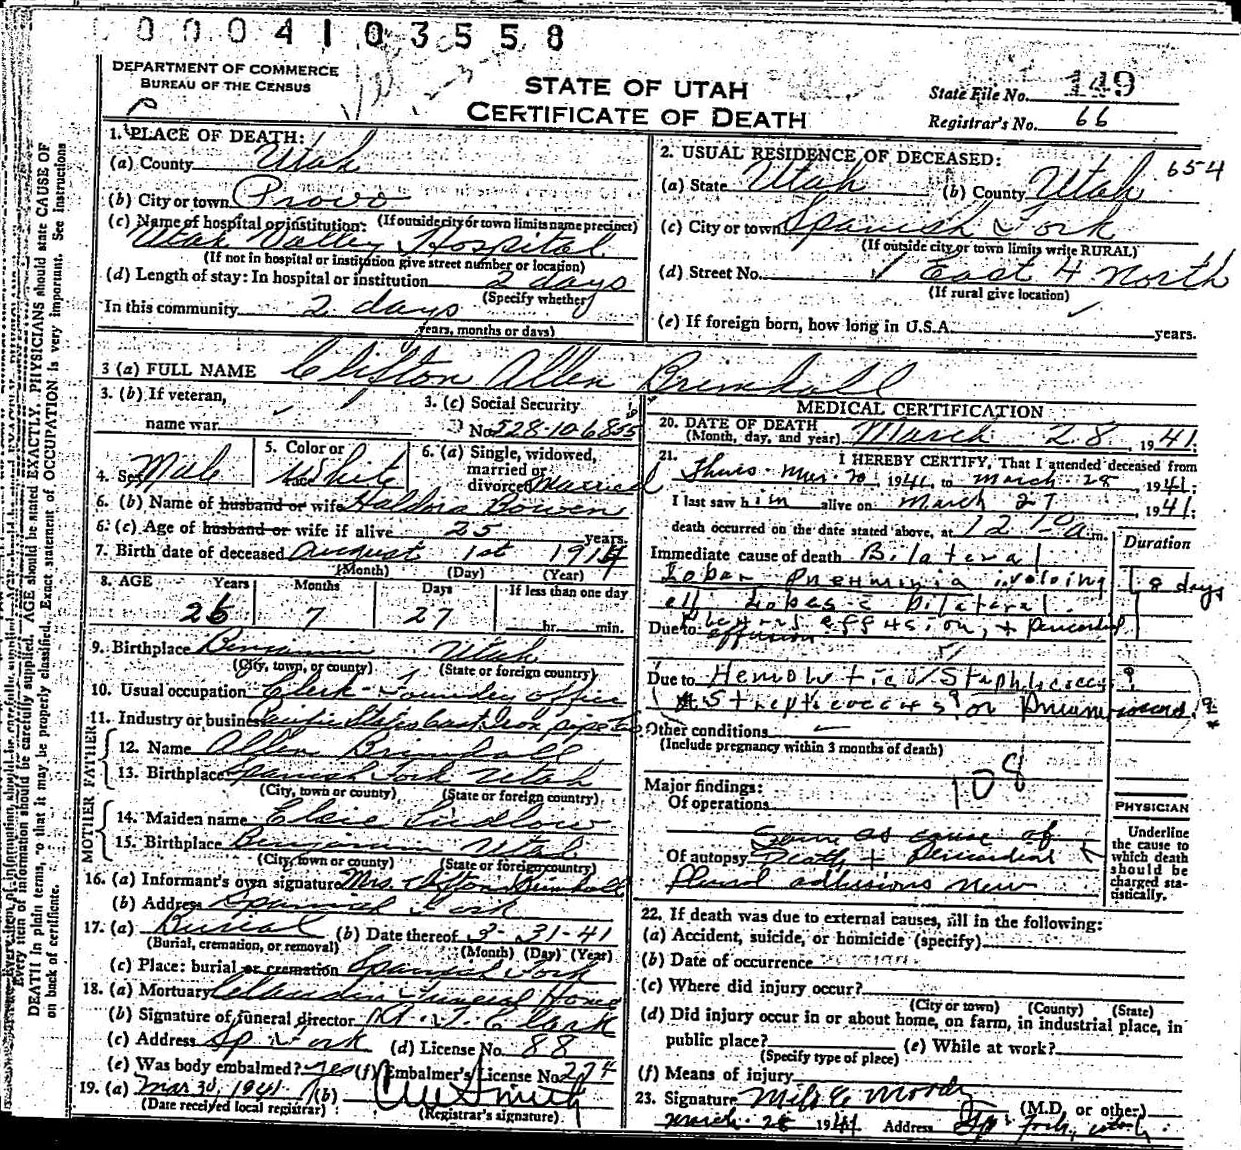 0004103558
DEPARTMENT OF COMMERCE
BUREAU OF THE CENSUS
STATE OF UTAH
CERTIFICATE OF DEATH
State File No. 149
Registrar's No. 66
1. PLACE OF DEATH:
(a) County Utah
(b) City or town Provo
(If outside city or town limits name precinct)
(c) Name of hospital or institution:
Utah Valley Hospital
(If not in hospital or institution give street number or location)
(d) Length of stay: In hospital or institution 2 days
(Specify whether
In this community 2 days
years, months or days)
2. USUAL RESIDENCE OF DECEASED: 654
(a) State Utah (b) County Utah
(c) City or town Spanish Fork
(If outside city or town limits write RURAL)
(d) Street No. 1 East 4 North
(If rural give location)
(e) If foreign born, how long in U.S.A. years.
3 (a) FULL NAME Clifton Allen Brimhall
3. (b) If veteran,
name war
3. (c) Social Security
No. 528-10-6855
4. Sex Male
5. Color or
race White
6. (a) Single, widowed,
married or
divorced Married
6. (b) Name of husband or wife Haldora Bowen
6. (c) Age of husband or wife if alive 25 years.
7. Birth date of deceased August 1st 1914
(Month) (Day) (Year)
8. AGE Years Months Days If less than one day
26 7 27 hr. min.
9. Birthplace Benjamin Utah
(City, town, or county) (State or foreign country)
10. Usual occupation Clerk - Foundry office
11. Industry or business Pacific States Cast Iron pipe
FATHER
12. Name Allen Brimhall
13. Birthplace Spanish Fork Utah
(City, town or county) (State or foreign country)
MOTHER
14. Maiden name Elsie Ludlow
15. Birthplace Benjamin Utah
(City, town or county) (State or foreign country)
16. (a) Informant's own signature Mrs. Clifton Brimhall
(b) Address Spanish Fork
17. (a) Burial (b) Date thereof 3-31-41
(Burial, cremation, or removal) (Month) (Day) (Year)
(c) Place: burial or cremation Spanish Fork
18. (a) Mortuary Claudin Funeral Home
(b) Signature of funeral director A. Y. Clark
(c) Address Sp. Fork (d) License No. 88
(e) Was body embalmed? yes (f) Embalmer's License No. 274
19. (a) Mar 30, 1941 (b)
(Date received local registrar) (Registrar's signature)
MEDICAL CERTIFICATION
20. DATE OF DEATH
(Month, day, and year) March 28, 1941
21. I HEREBY CERTIFY, That I attended deceased from
Thurs. Mar. 20, 1941, to March 28, 1941;
I last saw him alive on March 27, 1941;
death occurred on the date stated above, at 12 10 a.m.
Duration
Immediate cause of death Bilateral
Lobar Pneumonia involving
all Lobes c bilateral
8 days
Due to Pleural effusion, + pericardial
effusion
Due to Hemolytic Staphlococcus?
Streptococcus? or Pneumococcus?
Other conditions
(Include pregnancy within 3 months of death)
108
Major findings:
Of operations
Same as cause of
Of autopsy Death + Pericardial
Plural adhesions new
PHYSICIAN
Underline
the cause to
which death
should be
charged sta-
tistically.
22. If death was due to external causes, fill in the following:
(a) Accident, suicide, or homicide (specify)
(b) Date of occurrence
(c) Where did injury occur?
(City or town) (County) (State)
(d) Did injury occur in or about home, on farm, in industrial place, in
public place? (e) While at work?
(Specify type of place)
(f) Means of injury
23. Signature Milo C Moody
(M.D. or other)
March 28 1941 Address Sp. Fork, Utah
Every item of information should be carefully supplied. AGE should be stated EXACTLY. PHYSICIANS should state CAUSE OF
DEATH in plain terms, so that it may be properly classified. Exact statement of OCCUPATION is very important. See Instructions
on back of certificate.